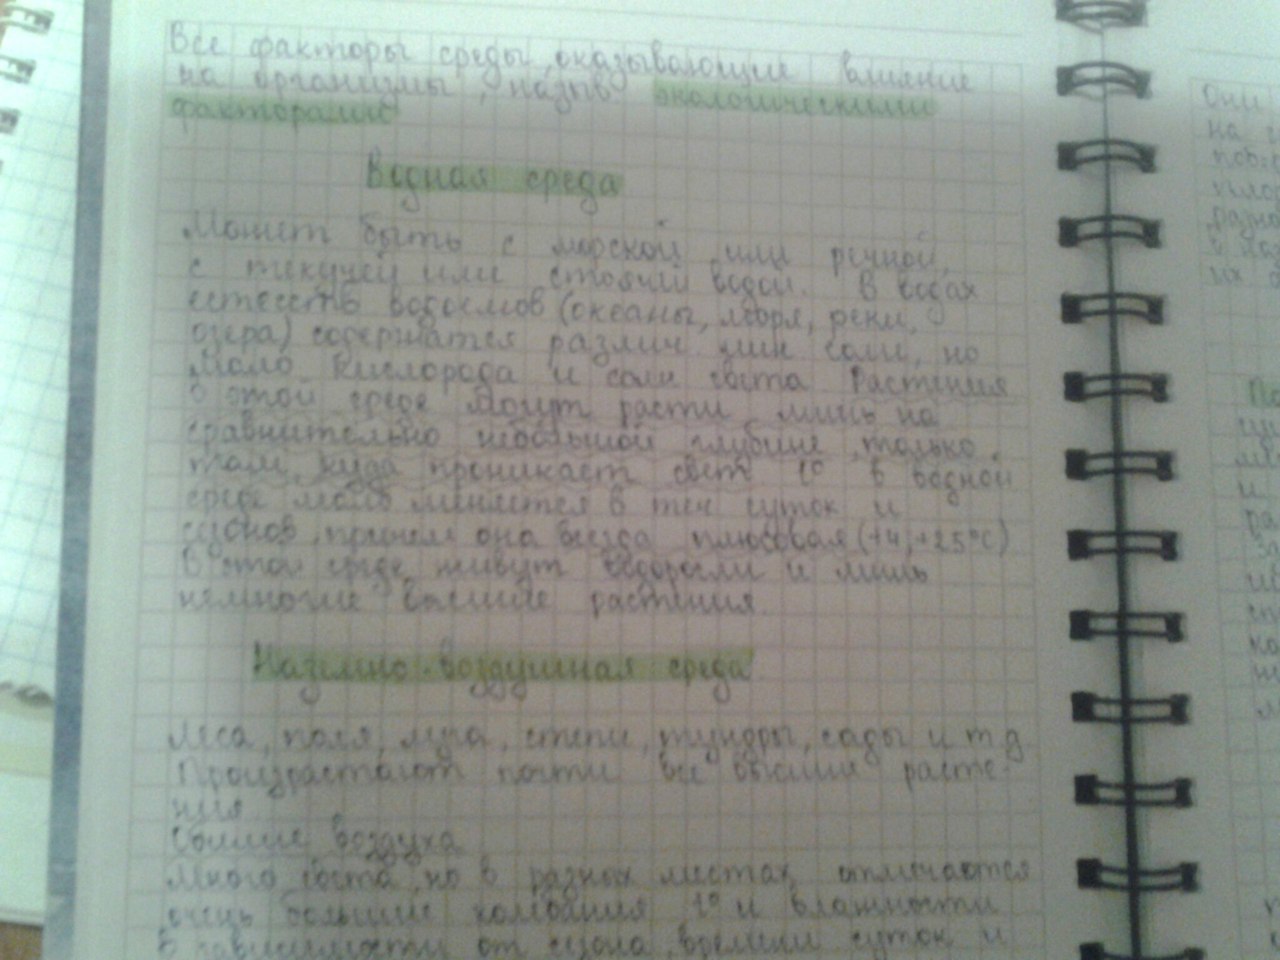 Все факторы среды, оказывающие влияние
на организмы, назыв. экологическими
факторами
Водная среда
Может быть с морской или речной,
с текучей или стоячей водой. В водах
естеств водоемов (океаны, моря, реки,
озера) содержатся различ. мин соли, но
мало кислорода и солн света Растения
в этой среде могут расти лишь на
сравнительно небольшой глубине, только
там, куда проникает свет t° в водной
среде мало меняется в теч суток и
сезонов, причем она всегда плюсовая (+4, +25°C)
В этой среде живут водоросли и лишь
немногие высшие растения.
Наземно-воздушная среда
Леса, поля, луга, степи, тундры, сады и т д
Произрастают почти все высшие расте-
ния
Обилие воздуха
Много света, но в разных местах отмечаются
очень большие колебания t° и влажности
В зависимости от сезона, времени суток и
Они
на